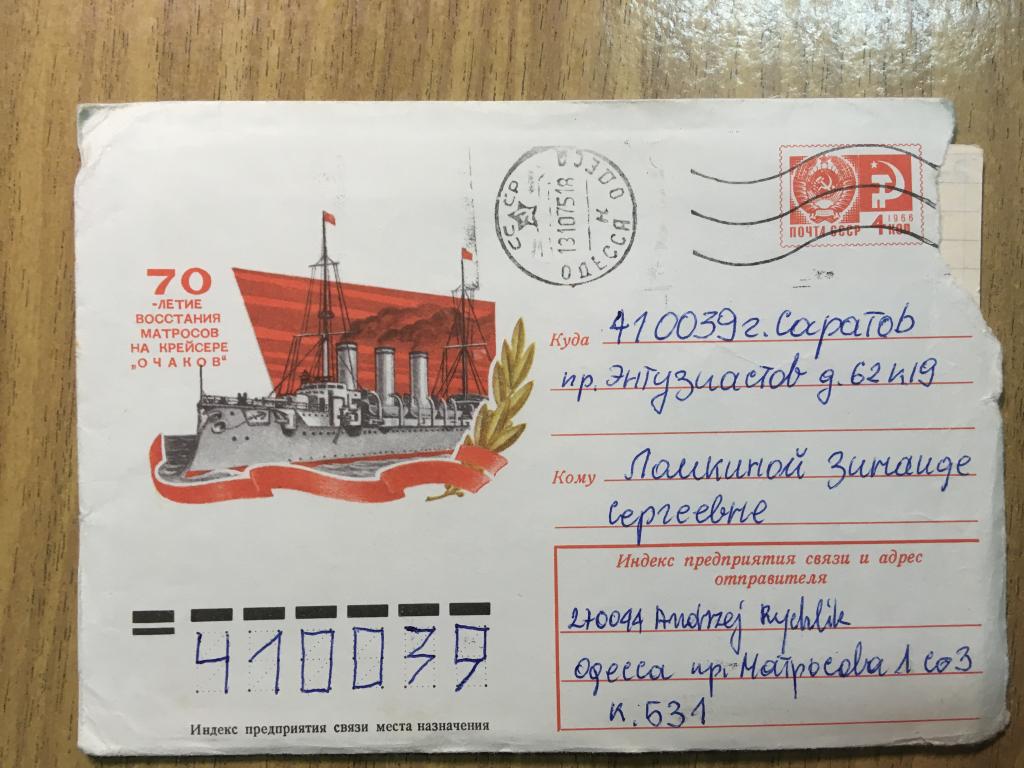 СССР
ОДЕССА
131075 18
ОДЕСА
К
1966
4 КОП
ПОЧТА СССР
70
-ЛЕТИЕ
ВОССТАНИЯ
МАТРОСОВ
НА КРЕЙСЕРЕ
„ОЧАКОВ"
Куда 410039 г. Саратов
пр. Энтузиастов д. 62 к 19
Кому Ломкиной Зинаиде
Сергеевне
Индекс предприятия связи и адрес
отправителя
270044 Andrzej Rychlik
Одесса пр. Матросова 1 со 3
к. 531
410039
Индекс предприятия связи места назначения